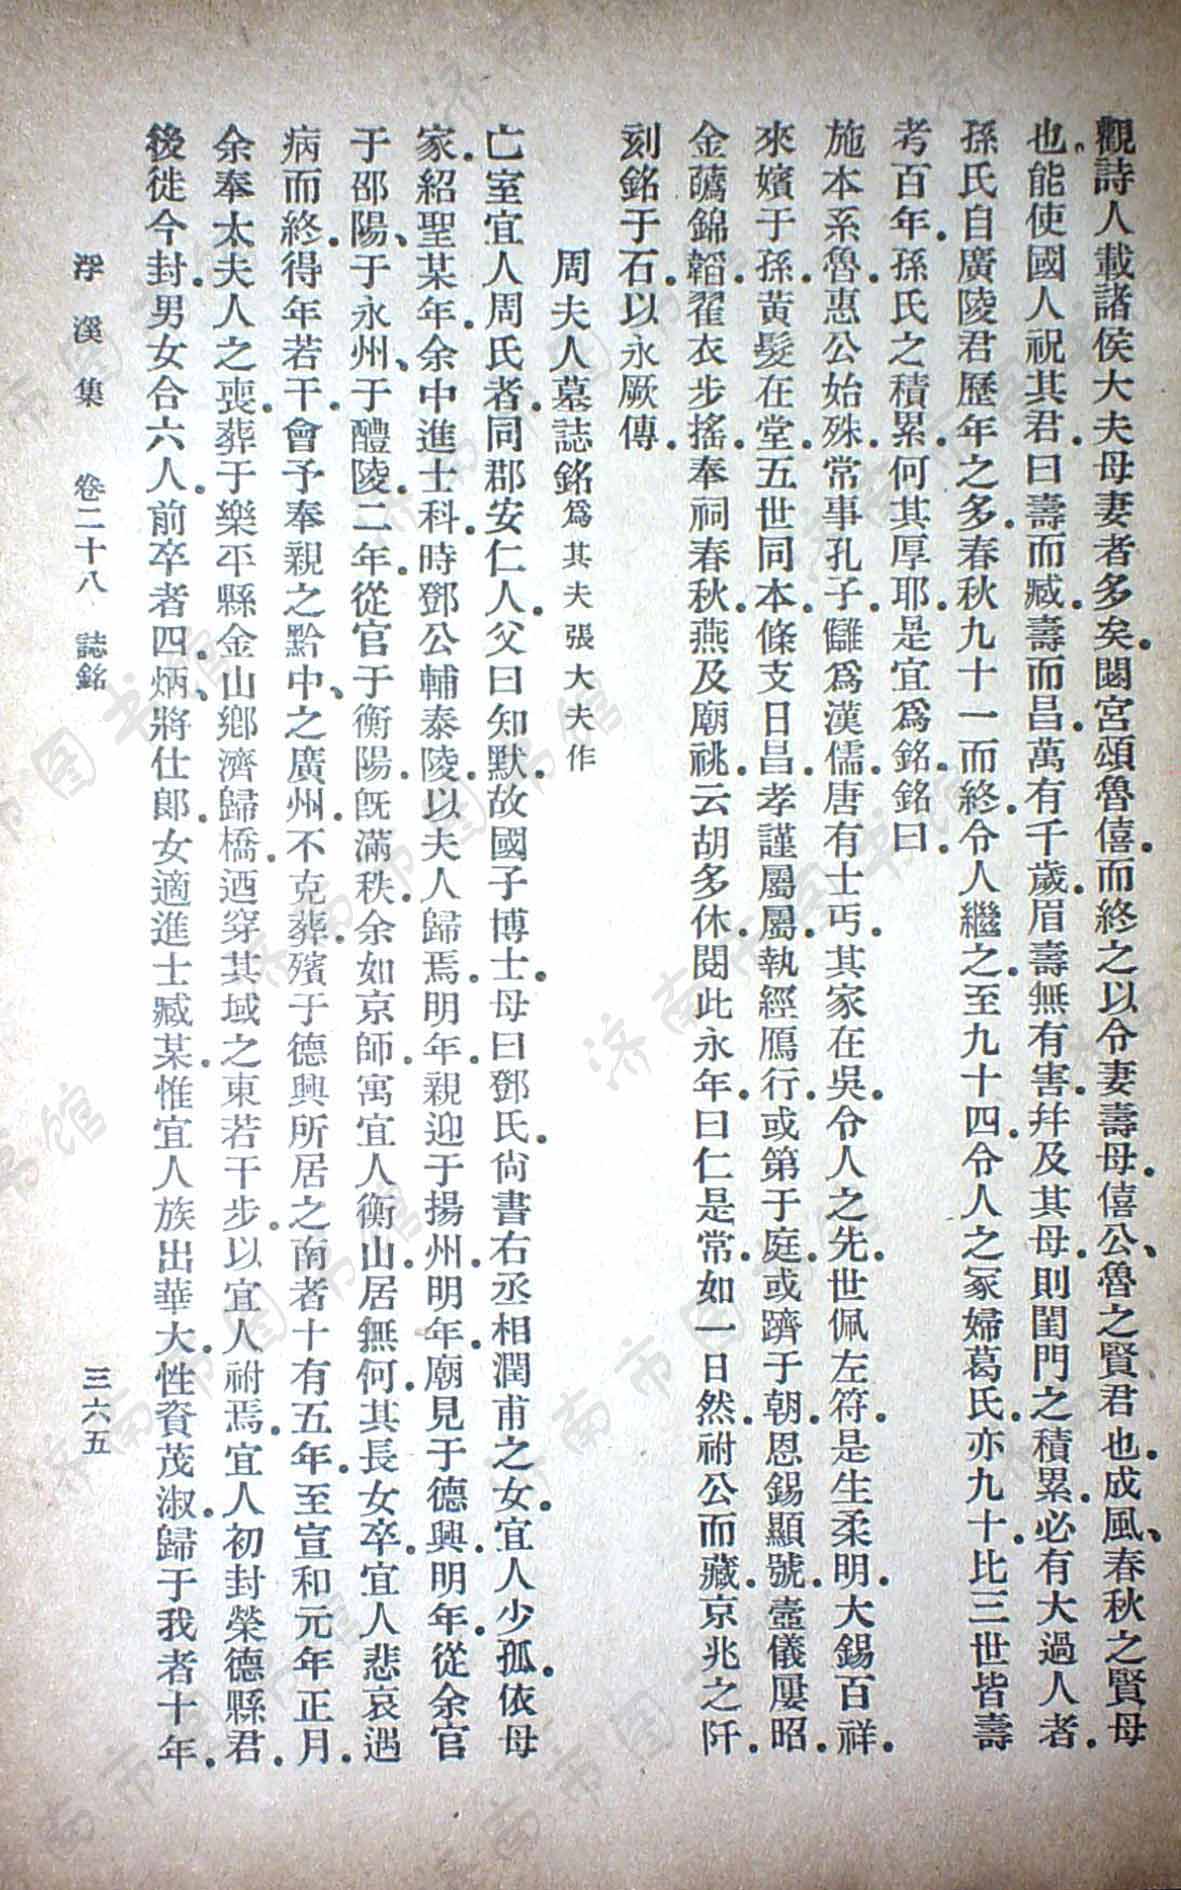 觀詩人載諸侯大夫母妻者多矣。閟宮頌魯僖。而終之以令妻壽母。僖公、魯之賢君也。成風、春秋之賢母
也。能使國人祝其君。曰壽而臧。壽而昌。萬有千歲。眉壽無有害。幷及其母。則閨門之積累。必有大過人者。
孫氏自廣陵君歷年之多。春秋九十一而終。令人繼之。至九十四。令人之冢婦葛氏。亦九十。比三世皆壽
考百年。孫氏之積累。何其厚耶。是宜爲銘。銘曰。
施本系魯。惠公始殊。常事孔子。讎爲漢儒。唐有士丐。其家在吳。令人之先。世佩左符。是生柔明。大錫百祥。
來嬪于孫。黃髮在堂。五世同本。條支日昌。孝謹屬屬。執經鴈行。或第于庭。或躋于朝。恩錫顯號。壼儀屢昭。
金薦錦韜。翟衣步搖。奉祠春秋。燕及廟祧。云胡多休。閱此永年。曰仁是常。如一日然。祔公而藏。京兆之阡。
刻銘于石。以永厥傳。
周夫人墓誌銘爲其夫張大夫作
亡室宜人周氏者。同郡安仁人。父曰知默。故國子博士。母曰鄧氏。尙書右丞相潤甫之女。宜人少孤。依母
家。紹聖某年。余中進士科。時鄧公輔泰陵。以夫人歸焉。明年。親迎于揚州。明年。廟見于德興。明年。從余官
于邵陽、于永州、于醴陵。二年。從官于衡陽。旣滿秩。余如京師。寓宜人衡山。居無何。其長女卒。宜人悲哀。遇
病而終。得年若干。會予奉親之黔中、之廣州。不克葬。殯于德興所居之南者十有五年。至宣和元年正月。
余奉太夫人之喪。葬于樂平縣金山鄉濟歸橋。迺穿其域之東若干步。以宜人祔焉。宜人初封榮德縣君。
後徙今封。男女合六人。前卒者四。炳、將仕郎。女適進士臧某。惟宜人族出華大。性資茂淑。歸于我者十年。
浮溪集 卷二十八 誌銘 三六五
济南市图书馆